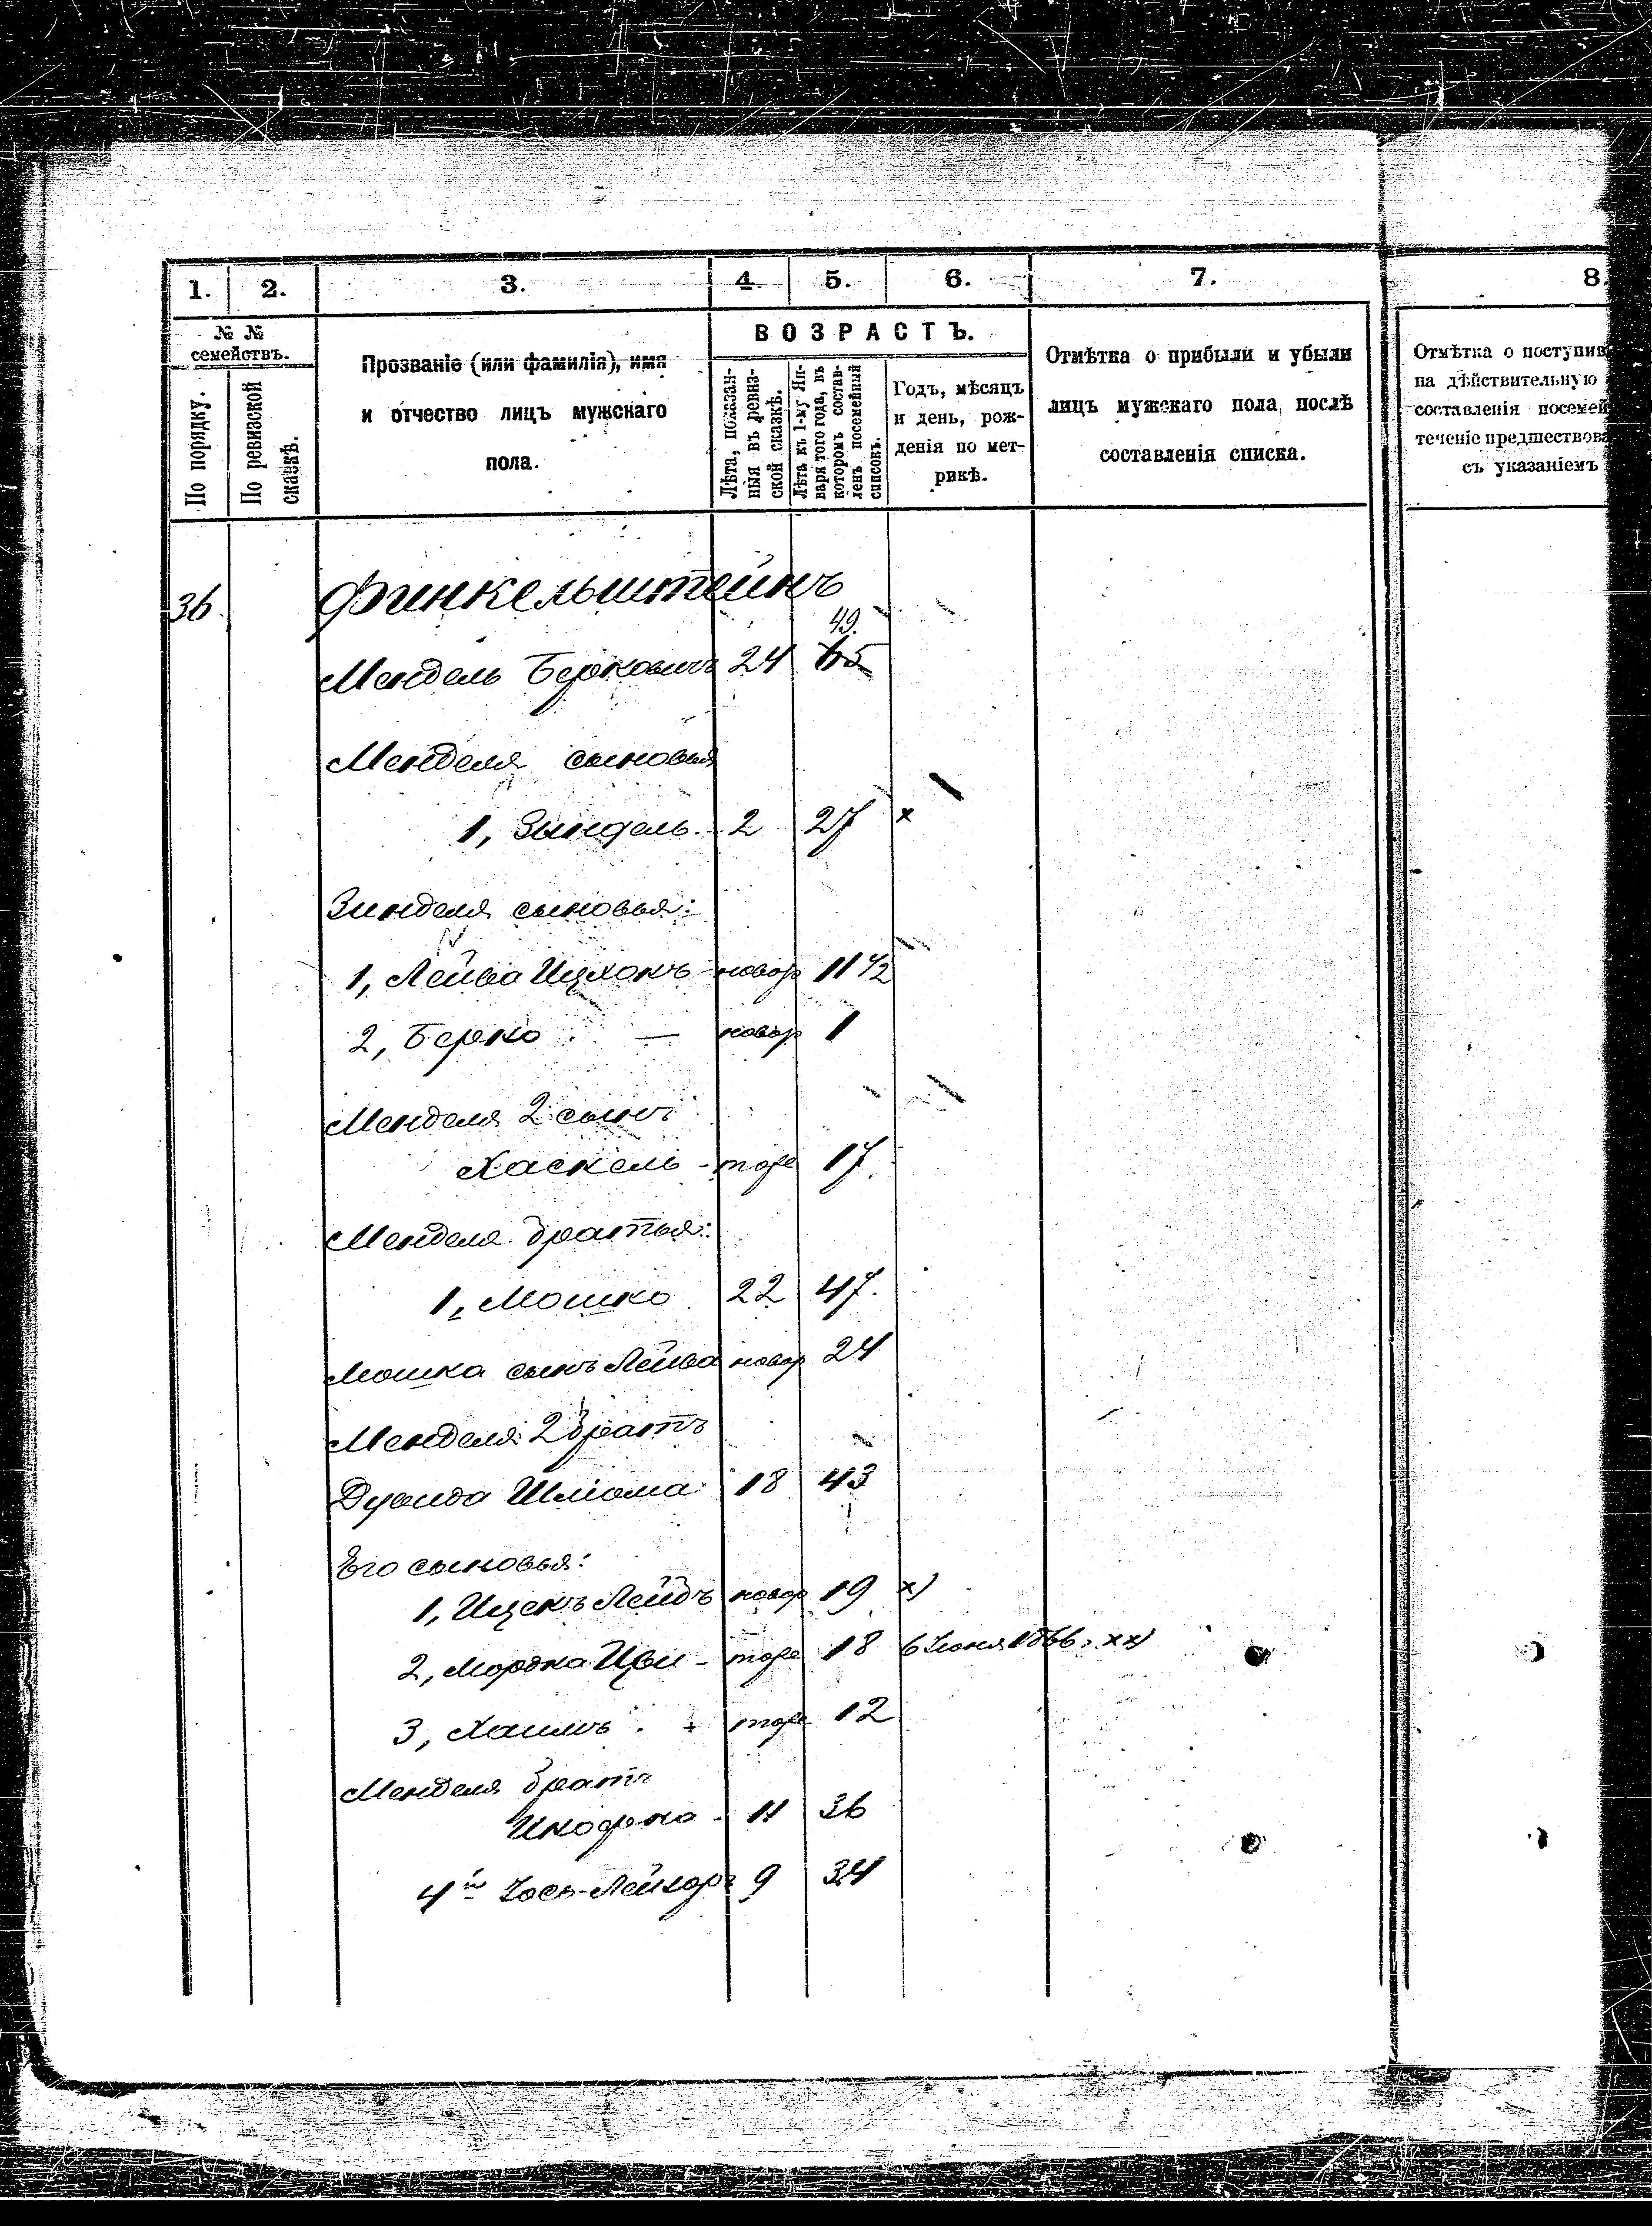 1. 2. 3. 4. 5. 6. 7. 8.
№ №
семействъ.
По порядку.
По ревизской
сказкѣ.
Прозваніе (или фамилія), имя
и отчество лицъ мужскаго
пола.
ВОЗРАСТЪ.
Лѣта, показан-
ныя въ ревиз-
ской сказкѣ.
Лѣта къ 1-му Ян-
варя того года, въ
которомъ состав-
ленъ посемейный
списокъ.
Годъ, мѣсяцъ
и день, рож-
денія по мет-
рикѣ.
Отмѣтка о прибыли и убыли
лицъ мужскаго пола послѣ
составленія списка.
Отмѣтка о поступив
на дѣйствительную
составленія посемей
теченіе предшествова
съ указаніемъ
36. Финкельштейнъ
49.
Мендель Берковичъ 24
Менделя сыновья
1, Зындель. 2 27 x
Зинделя сыновья:
1, Лейба Ицхокъ новор 11 1/2
2, Берко — новор 1
Менделя 2 сынъ
Хаскель - тоже 17.
Менделя братья:
1, Мошко 22 47.
Мошка сынъ Лейба новор 24
Менделя 2 братъ
Шліома 18 43
Его сыновья:
1, Ицекъ Лейбъ новор 19 x)
2, Мордка Цви - тоже 18 6 Іюня 1866 г. xx)
3, Хаимъ тоже 12
Менделя братъ
11 36
4й Іось-Лейзоръ 9 34